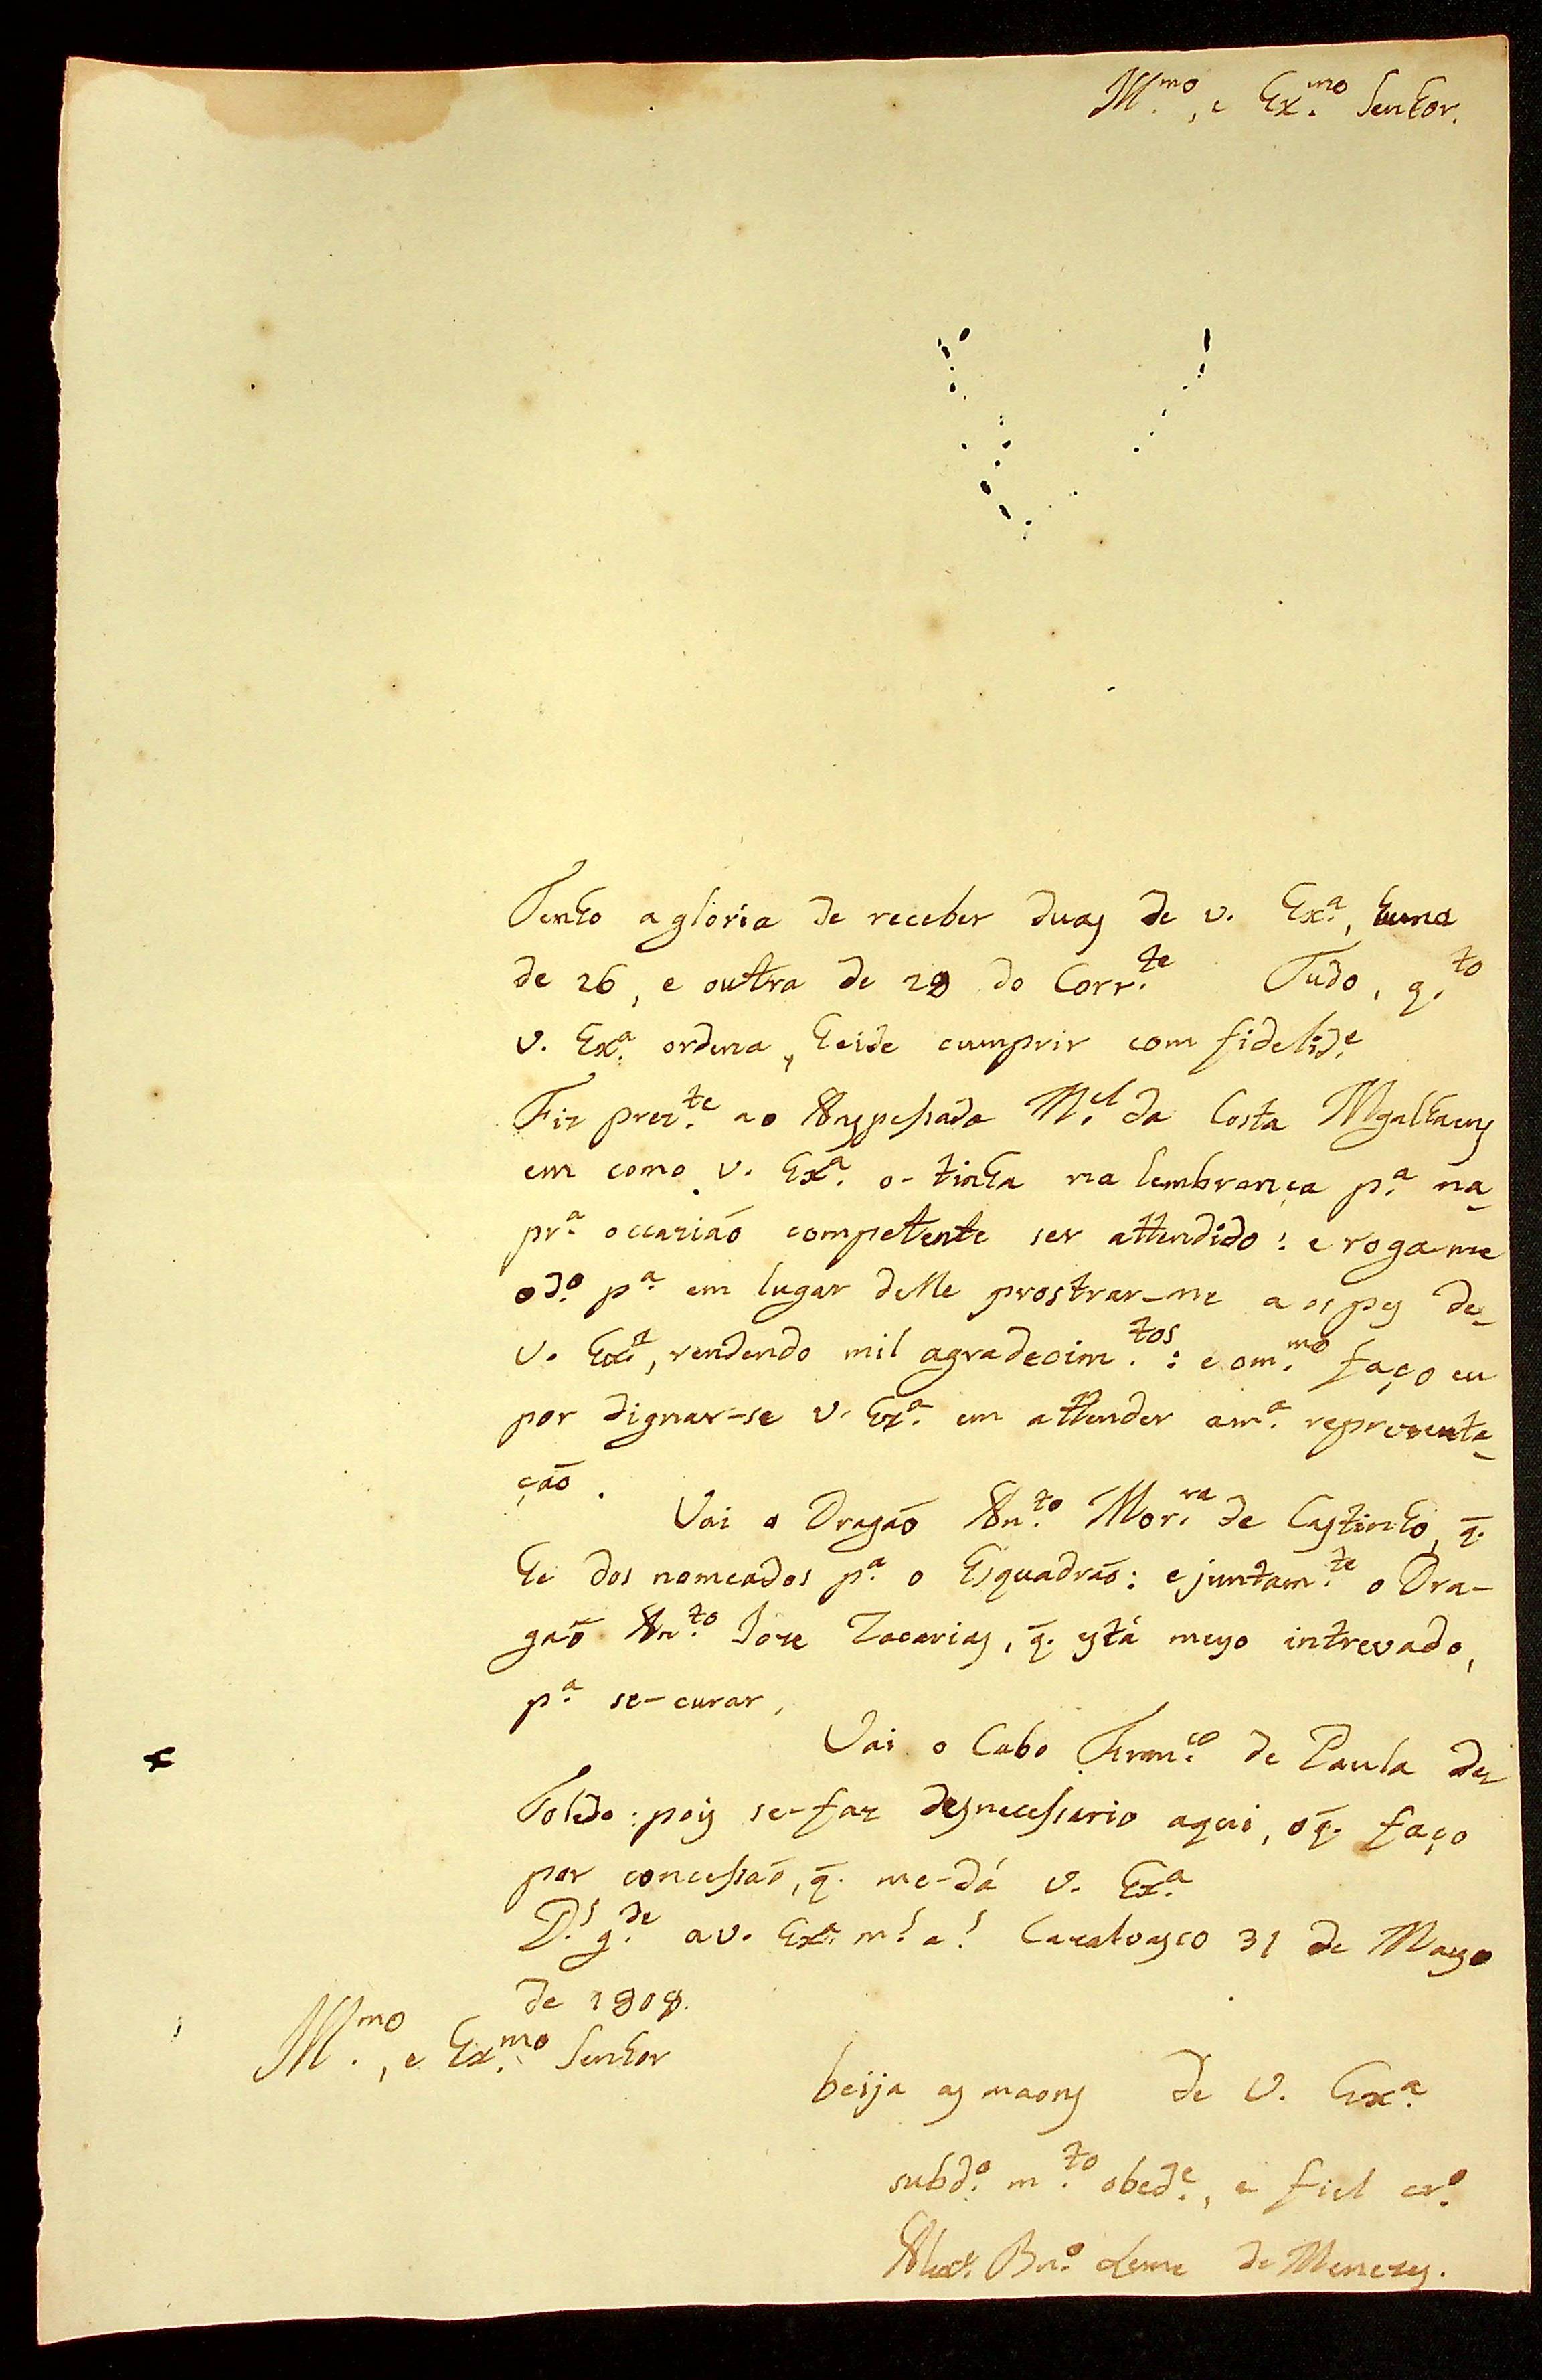 Ill.mo, e Ex.mo Senhor.
Tenho a gloria de receber duas de v. Ex.a, huma
de 26, e outra de 28 do Corr.te Tudo, q.to
v. Ex.a ordena, heide cumprir com fidelid.e
Fiz prez.te ao Anspessada M.el da Costa Mgalhaens
em como v. Ex.a o-tinha na lembrança p.a na_
pr.a occaziaõ competente ser attendido: e roga-me
o d.o p.a em lugar delle prostrar-me aos pes de_
v. Ex.a, rendendo mil agradecim.tos: e o m.mo faço eu
por dignar-se v. Ex.a em attender a m.a reprezenta_
çaõ.
Vai o Dragaõ An.to Mor.ra de Castinho, q̃.
he dos nomeados p.a o Esquadraõ: e juntam.te o Dra-
gaõ An.to Joze Zacarias, q̃. está meyo intrevado,
p.a se-curar,
Vai o Cabo Fran.co de Paula de
Toledo: pois se-faz desnecessario aqui, o q̃. faço
por concessaõ, q̃. me-dá v. Ex.a
D.s g.de a v. Ex.a m.s a.s 31 de Mayo
de 1808.
Ill.mo, e Ex.mo Senhor
beija as maons de V. Ex.a
subd.o m.to obed.e, e fiel cr.o
Alex.e Bn.o Leme de Menezes.